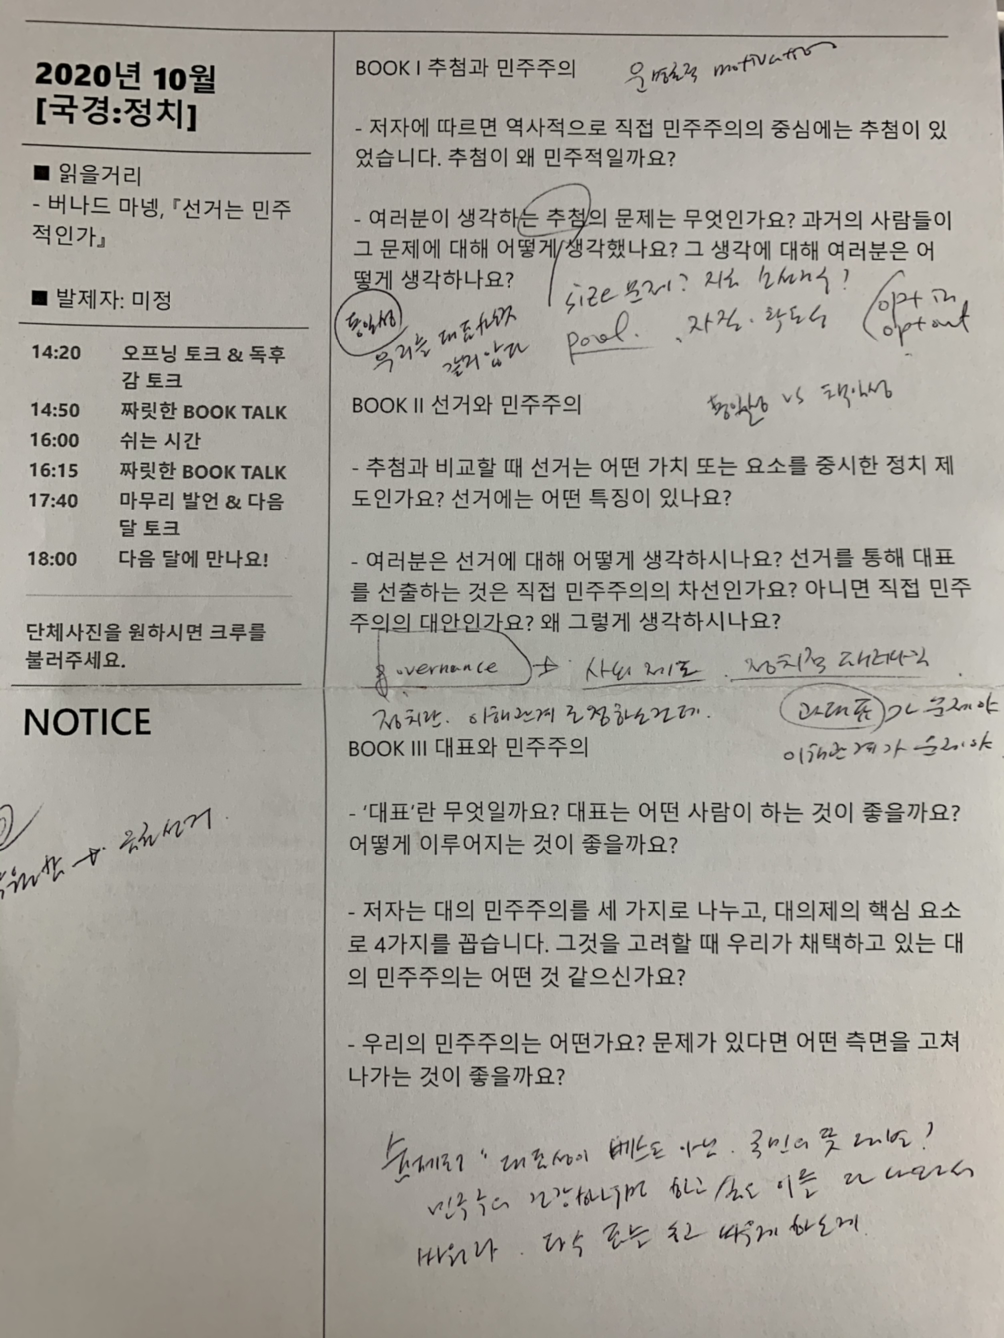 2020년 10월
[국경:정치]
■ 읽을거리
- 버나드 마넹, 『선거는 민주
적인가』
■ 발제자: 미정
14:20 오프닝 토크 & 독후
감 토크
14:50 짜릿한 BOOK TALK
16:00 쉬는 시간
16:15 짜릿한 BOOK TALK
17:40 마무리 발언 & 다음
달 토크
18:00 다음 달에 만나요!
단체사진을 원하시면 크루를
불러주세요.
NOTICE
BOOK I 추첨과 민주주의
motivation
- 저자에 따르면 역사적으로 직접 민주주의의 중심에는 추첨이 있
었습니다. 추첨이 왜 민주적일까요?
- 여러분이 생각하는 추첨의 문제는 무엇인가요? 과거의 사람들이
그 문제에 대해 어떻게 생각했나요? 그 생각에 대해 여러분은 어
떻게 생각하나요?
size 문제?
동일성
우리는
같지 않다
pool. 자질.
opt in
opt out
BOOK II 선거와 민주주의
동일성 vs 탁월성
- 추첨과 비교할 때 선거는 어떤 가치 또는 요소를 중시한 정치 제
도인가요? 선거에는 어떤 특징이 있나요?
- 여러분은 선거에 대해 어떻게 생각하시나요? 선거를 통해 대표
를 선출하는 것은 직접 민주주의의 차선인가요? 아니면 직접 민주
주의의 대안인가요? 왜 그렇게 생각하시나요?
governance →
정치란. 이해관계 조정하는건데.
과대표가 문제야
이해관계가 문제야
BOOK III 대표와 민주주의
- ‘대표’란 무엇일까요? 대표는 어떤 사람이 하는 것이 좋을까요?
어떻게 이루어지는 것이 좋을까요?
- 저자는 대의 민주주의를 세 가지로 나누고, 대의제의 핵심 요소
로 4가지를 꼽습니다. 그것을 고려할 때 우리가 채택하고 있는 대
의 민주주의는 어떤 것 같으신가요?
- 우리의 민주주의는 어떤가요? 문제가 있다면 어떤 측면을 고쳐
나가는 것이 좋을까요?
대표성이 베스트 아닌. 국민의 뜻 대변?